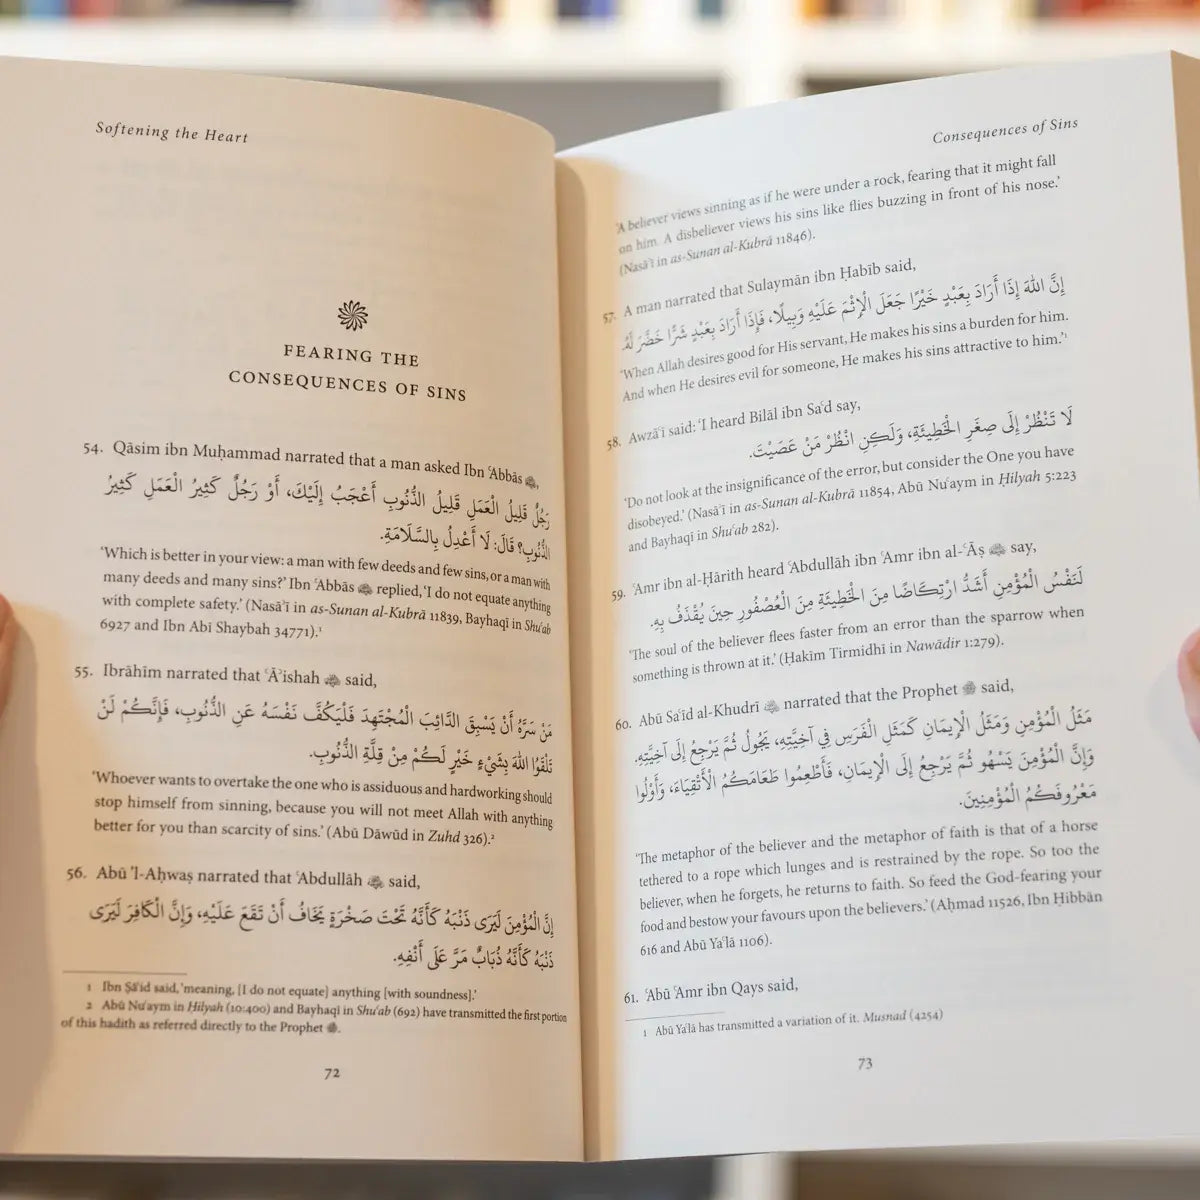 Softening the Heart
FEARING THE
CONSEQUENCES OF SINS
54. Qāsim ibn Muḥammad narrated that a man asked Ibn ʿAbbās ﵁,
رَجُلٌ قَلِيلُ الْعَمَلِ قَلِيلُ الذُّنُوبِ أَعْجَبُ إِلَيْكَ، أَوْ رَجُلٌ كَثِيرُ الْعَمَلِ كَثِيرُ
الذُّنُوبِ؟ قَالَ: لَا أَعْدِلُ بِالسَّلَامَةِ.
‘Which is better in your view: a man with few deeds and few sins, or a man with
many deeds and many sins?’ Ibn ʿAbbās replied, ‘I do not equate anything
with complete safety.’ (Nasāʾī in as-Sunan al-Kubrā 11839, Bayhaqī in Shuʿab
6927 and Ibn Abī Shaybah 34771).¹
55. Ibrāhīm narrated that ʿĀʾishah said,
مَنْ سَرَّهُ أَنْ يَسْبِقَ الدَّائِبَ الْمُجْتَهِدَ فَلْيَكُفَّ نَفْسَهُ عَنِ الذُّنُوبِ، فَإِنَّكُمْ لَنْ
تَلْقَوُا اللهَ بِشَيْءٍ خَيْرٍ لَكُمْ مِنْ قِلَّةِ الذُّنُوبِ.
‘Whoever wants to overtake the one who is assiduous and hardworking should
stop himself from sinning, because you will not meet Allah with anything
better for you than scarcity of sins.’ (Abū Dāwūd in Zuhd 326).²
56. Abū ’l-Aḥwaṣ narrated that ʿAbdullāh said,
إِنَّ الْمُؤْمِنَ لَيَرَى ذَنْبَهُ كَأَنَّهُ تَحْتَ صَخْرَةٍ يَخَافُ أَنْ تَقَعَ عَلَيْهِ، وَإِنَّ الْكَافِرَ لَيَرَى
ذَنْبَهُ كَأَنَّهُ ذُبَابٌ مَرَّ عَلَى أَنْفِهِ.
1 Ibn Ṣāʿid said, ‘meaning, [I do not equate] anything [with soundness].’
2 Abū Nuʿaym in Ḥilyah (10:400) and Bayhaqī in Shuʿab (692) have transmitted the first portion
of this hadith as referred directly to the Prophet ﷺ.
72
Consequences of Sins
‘A believer views sinning as if he were under a rock, fearing that it might fall
on him. A disbeliever views his sins like flies buzzing in front of his nose.’
(Nasāʾī in as-Sunan al-Kubrā 11846).
57. A man narrated that Sulaymān ibn Ḥabīb said,
إِنَّ اللهَ إِذَا أَرَادَ بِعَبْدٍ خَيْرًا جَعَلَ الْإِثْمَ عَلَيْهِ وَبِيلًا، فَإِذَا أَرَادَ بِعَبْدٍ شَرًّا خَضَّرَ لَهُ.
‘When Allah desires good for His servant, He makes his sins a burden for him.
And when He desires evil for someone, He makes his sins attractive to him.’¹
58. Awzāʿī said: ‘I heard Bilāl ibn Saʿd say,
لَا تَنْظُرْ إِلَى صِغَرِ الْخَطِيئَةِ، وَلَكِنِ انْظُرْ مَنْ عَصَيْتَ.
‘Do not look at the insignificance of the error, but consider the One you have
disobeyed.’ (Nasāʾī in as-Sunan al-Kubrā 11854, Abū Nuʿaym in Ḥilyah 5:223
and Bayhaqī in Shuʿab 282).
59. ʿAmr ibn al-Ḥārith heard ʿAbdullāh ibn ʿAmr ibn al-ʿĀṣ say,
لَنَفْسُ الْمُؤْمِنِ أَشَدُّ ارْتِكَاضًا مِنَ الْخَطِيئَةِ مِنَ الْعُصْفُورِ حِينَ يُقْذَفُ بِهِ.
‘The soul of the believer flees faster from an error than the sparrow when
something is thrown at it.’ (Ḥakīm Tirmidhī in Nawādir 1:279).
60. Abū Saʿīd al-Khudrī narrated that the Prophet ﷺ said,
مَثَلُ الْمُؤْمِنِ وَمَثَلُ الْإِيمَانِ كَمَثَلِ الْفَرَسِ فِي آخِيَّتِهِ، يَجُولُ ثُمَّ يَرْجِعُ إِلَى آخِيَّتِهِ.
وَإِنَّ الْمُؤْمِنَ يَسْهُو ثُمَّ يَرْجِعُ إِلَى الْإِيمَانِ، فَأَطْعِمُوا طَعَامَكُمُ الْأَتْقِيَاءَ، وَأَوْلُوا
مَعْرُوفَكُمُ الْمُؤْمِنِينَ.
‘The metaphor of the believer and the metaphor of faith is that of a horse
tethered to a rope which lunges and is restrained by the rope. So too the
believer, when he forgets, he returns to faith. So feed the God-fearing your
food and bestow your favours upon the believers.’ (Aḥmad 11526, Ibn Ḥibbān
616 and Abū Yaʿlā 1106).
61. ʿAbū ʿAmr ibn Qays said,
1 Abū Yaʿlā has transmitted a variation of it. Musnad (4254)
73